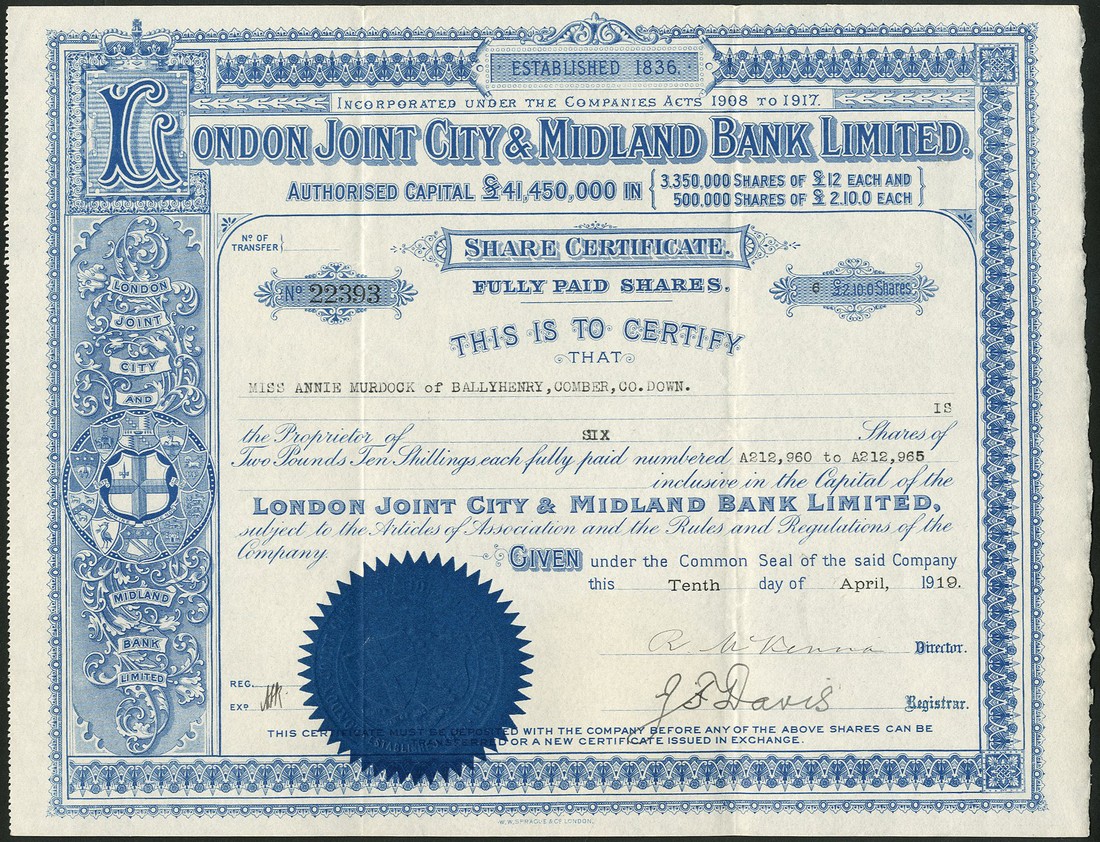 ESTABLISHED 1836.
INCORPORATED UNDER THE COMPANIES ACTS 1908 TO 1917.
LONDON JOINT CITY & MIDLAND BANK LIMITED.
AUTHORISED CAPITAL £41,450,000 IN { 3,350,000 SHARES OF £12 EACH AND
500,000 SHARES OF £2.10.0 EACH }
No OF
TRANSFER
SHARE CERTIFICATE.
No 22393
FULLY PAID SHARES.
6 £2.10.0 Shares
THIS IS TO CERTIFY
THAT
MISS ANNIE MURDOCK of BALLYHENRY,COMBER,CO.DOWN.
IS
the Proprietor of SIX Shares of
Two Pounds Ten Shillings each fully paid numbered A212,960 to A212,965
inclusive in the Capital of the
LONDON JOINT CITY & MIDLAND BANK LIMITED,
subject to the Articles of Association and the Rules and Regulations of the
Company.
GIVEN under the Common Seal of the said Company
this Tenth day of April, 1919.
R. McKenna Director.
J F Davis Registrar.
REG.
EXD
THIS CERTIFICATE MUST BE DEPOSITED WITH THE COMPANY BEFORE ANY OF THE ABOVE SHARES CAN BE
TRANSFERRED OR A NEW CERTIFICATE ISSUED IN EXCHANGE.
LONDON
JOINT
CITY
AND
MIDLAND
BANK
LIMITED
W.W. SPRAGUE & Co LONDON.